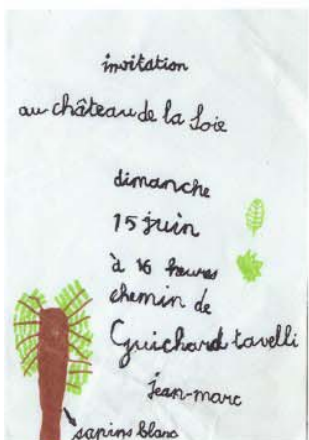 invitation
au château de la Soie
dimanche
15 juin
à 16 heures
chemin de
Guichard tavelli
Jean-marc
sapins blanc